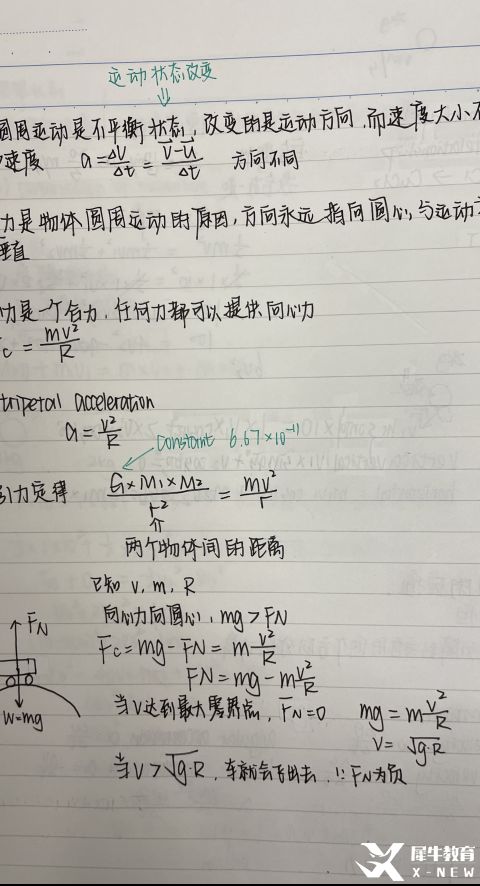 运动状态改变
⇓
圆周运动是不平衡状态, 改变的是运动方向, 而速度大小不
速度 a = ΔV/Δt = (V-U)/Δt 方向不同
力是物体圆周运动的原因, 方向永远指向圆心, 与运动方
垂直
力是一个合力, 任何力都可以提供向心力
c = mv²/R
tripetal acceleration
a = v²/R
constant 6.67×10⁻¹¹
引力定律 (G×M₁×M₂)/r² = mv²/r
⇑
两个物体间的距离
已知 v, m, R
向心力向圆心, mg > FN
Fc = mg - FN = m v²/R
FN = mg - m v²/R
FN
W=mg
当V达到最大零界点, FN=0 mg = m v²/R
V = √g·R
当V > √g·R, 车就会飞出去, ∵ FN为负
犀牛教育
X-NEW